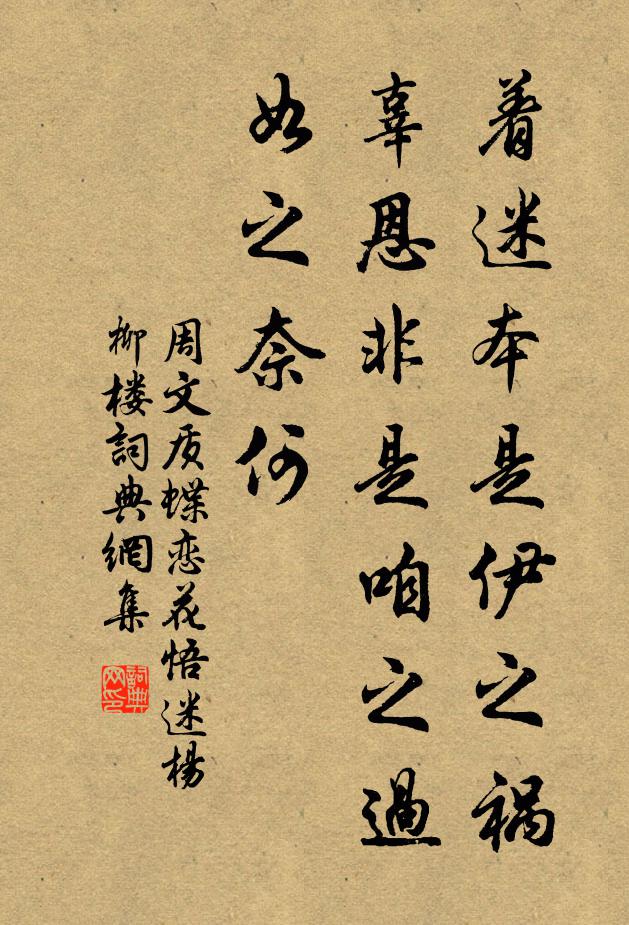 着迷本是伊之祸
辜恩非是咱之過
如之奈何
周文质蝶恋花悟迷楊
柳楼詞典網集
詞典
网印